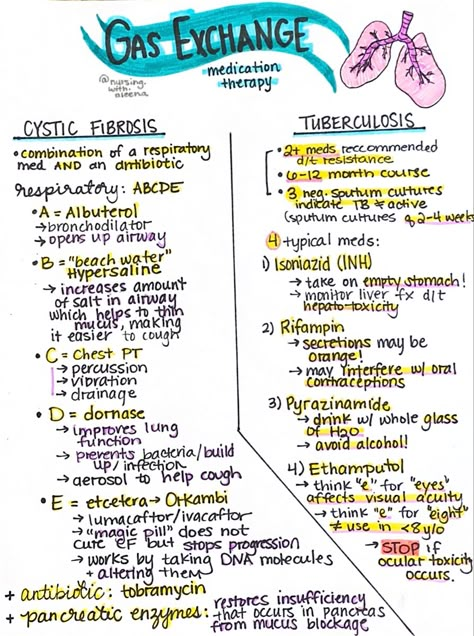 GAS EXCHANGE
medication
therapy
@nursing.
with.
aleena
CYSTIC FIBROSIS
• combination of a respiratory
med AND an antibiotic
respiratory: ABCDE
• A = Albuterol
→ bronchodilator
→ opens up airway
• B = "beach water"
Hypersaline
→ increases amount
of salt in airway
which helps to thin
mucus, making
it easier to cough
• C = Chest PT
→ percussion
→ vibration
→ drainage
• D = dornase
→ improves lung
function
→ prevents bacteria/build
up/infection
→ aerosol to help cough
• E = etcetera → Orkambi
→ lumacaftor/ivacaftor
→ "magic pill" does not
cure CF but stops progression
→ works by taking DNA molecules
+ altering them
+ antibiotic: tobramycin
+ pancreatic enzymes: restores insufficiency
that occurs in pancreas
from mucus blockage
TUBERCULOSIS
• 2+ meds reccommended
d/t resistance
• 6-12 month course
• 3 neg. sputum cultures
indicate TB ≠ active
(sputum cultures q 2-4 weeks
4 typical meds:
1) Isoniazid (INH)
→ take on empty stomach!
→ monitor liver fx d/t
hepatotoxicity
2) Rifampin
→ secretions may be
orange!
→ may interfere w/ oral
contraceptions
3) Pyrazinamide
→ drink w/ whole glass
of H2O
→ avoid alcohol!
4) Ethambutol
→ think "e" for "eyes"
affects visual acuity
→ think "e" for "eight"
≠ use in <8 y/o
→ STOP if
ocular toxicity
occurs.